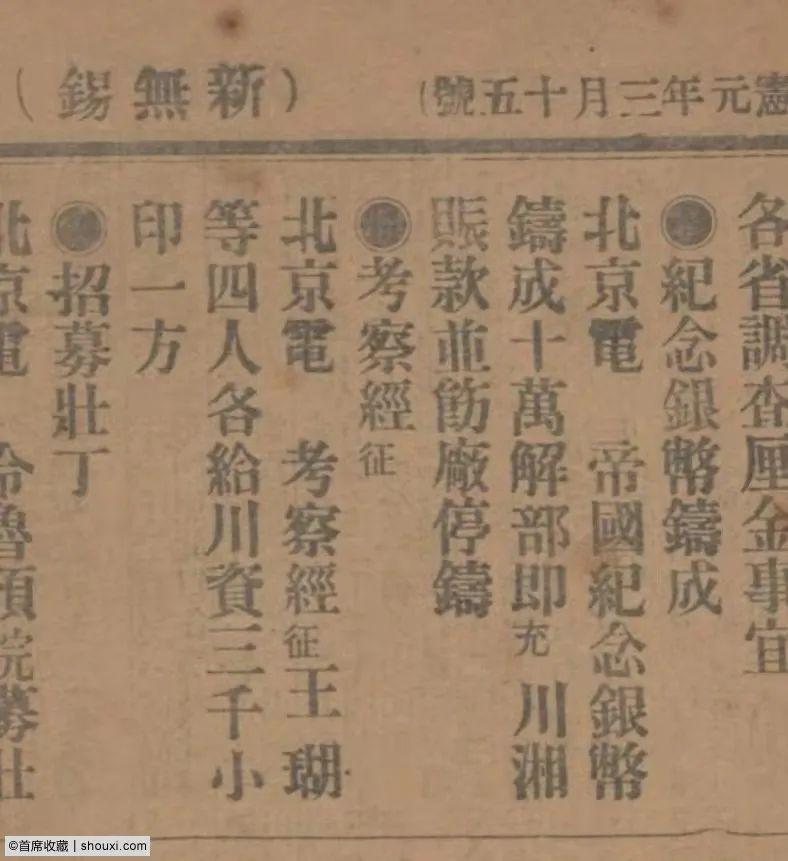 憲元年三月十五號)
(新無錫)
各省調查厘金事宜
◉紀念銀幣鑄成
北京電 帝國紀念銀幣
鑄成十萬解部即充川湘
賑款並飭廠停鑄
◉考察經征
北京電 考察經征王瑚
等四人各給川資三千小
印一方
◉招募壯丁
北京電 令魯預院募壯
©首席收藏 | shouxi.com